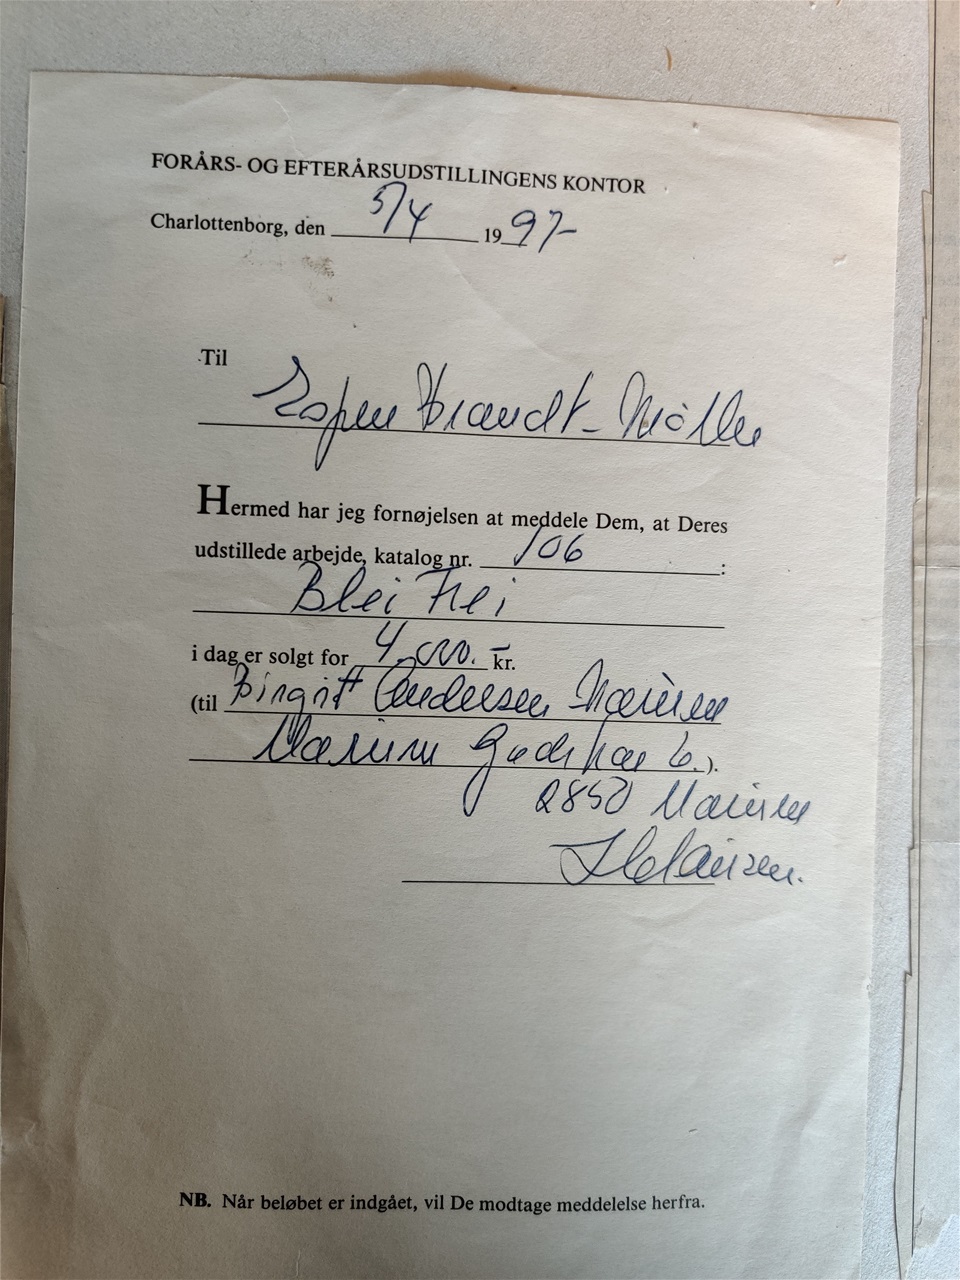 FORÅRS- OG EFTERÅRSUDSTILLINGENS KONTOR
Charlottenborg, den 5/4 1997-
Til
Espen Brandt-Møller
Hermed har jeg fornøjelsen at meddele Dem, at Deres
udstillede arbejde, katalog nr. 106 :
Blei Frei
i dag er solgt for 4.000.- kr.
(til Birgitt Andersen Nærum
Nærum Gadekær 6.).
2850 Nærum
NB. Når beløbet er indgået, vil De modtage meddelelse herfra.